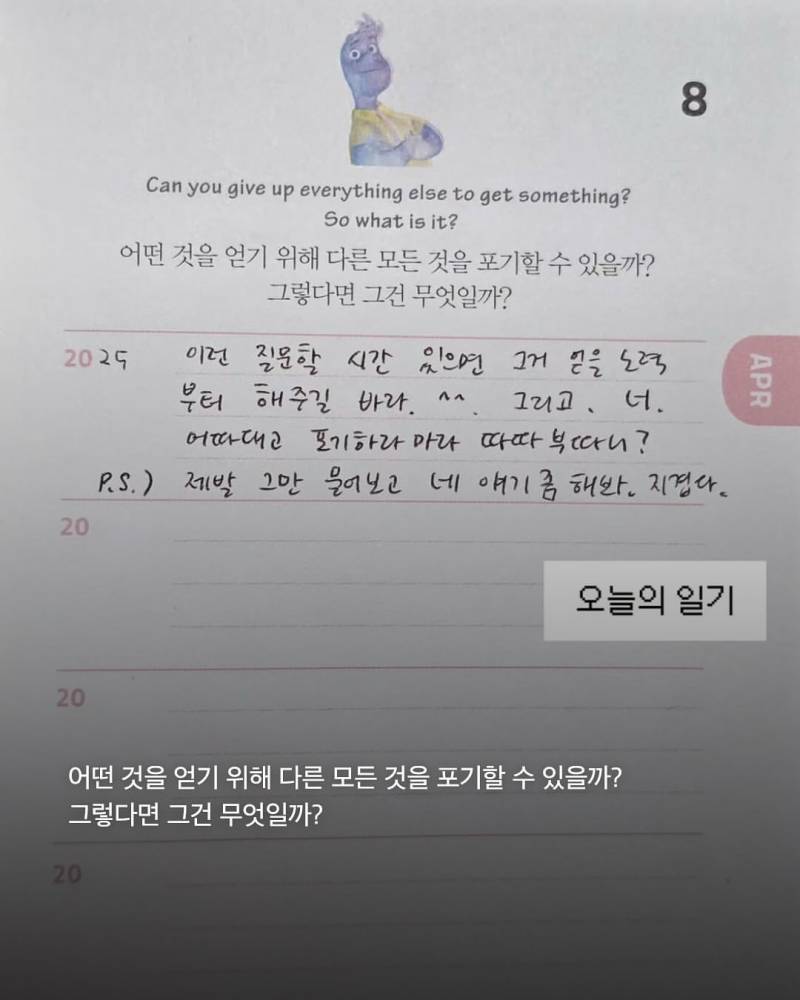 8
Can you give up everything else to get something?
So what is it?
어떤 것을 얻기 위해 다른 모든 것을 포기할 수 있을까?
그렇다면 그건 무엇일까?
2025 이런 질문할 시간 있으면 그거 얻을 노력
부터 해주길 바라. ^^. 그리고, 너.
어따대고 포기하라마라 따따부따니?
P.S.) 제발 그만 물어보고 네 얘기 좀 해봐. 지겹다.
APR
20
오늘의 일기
20
어떤 것을 얻기 위해 다른 모든 것을 포기할 수 있을까?
그렇다면 그건 무엇일까?
20